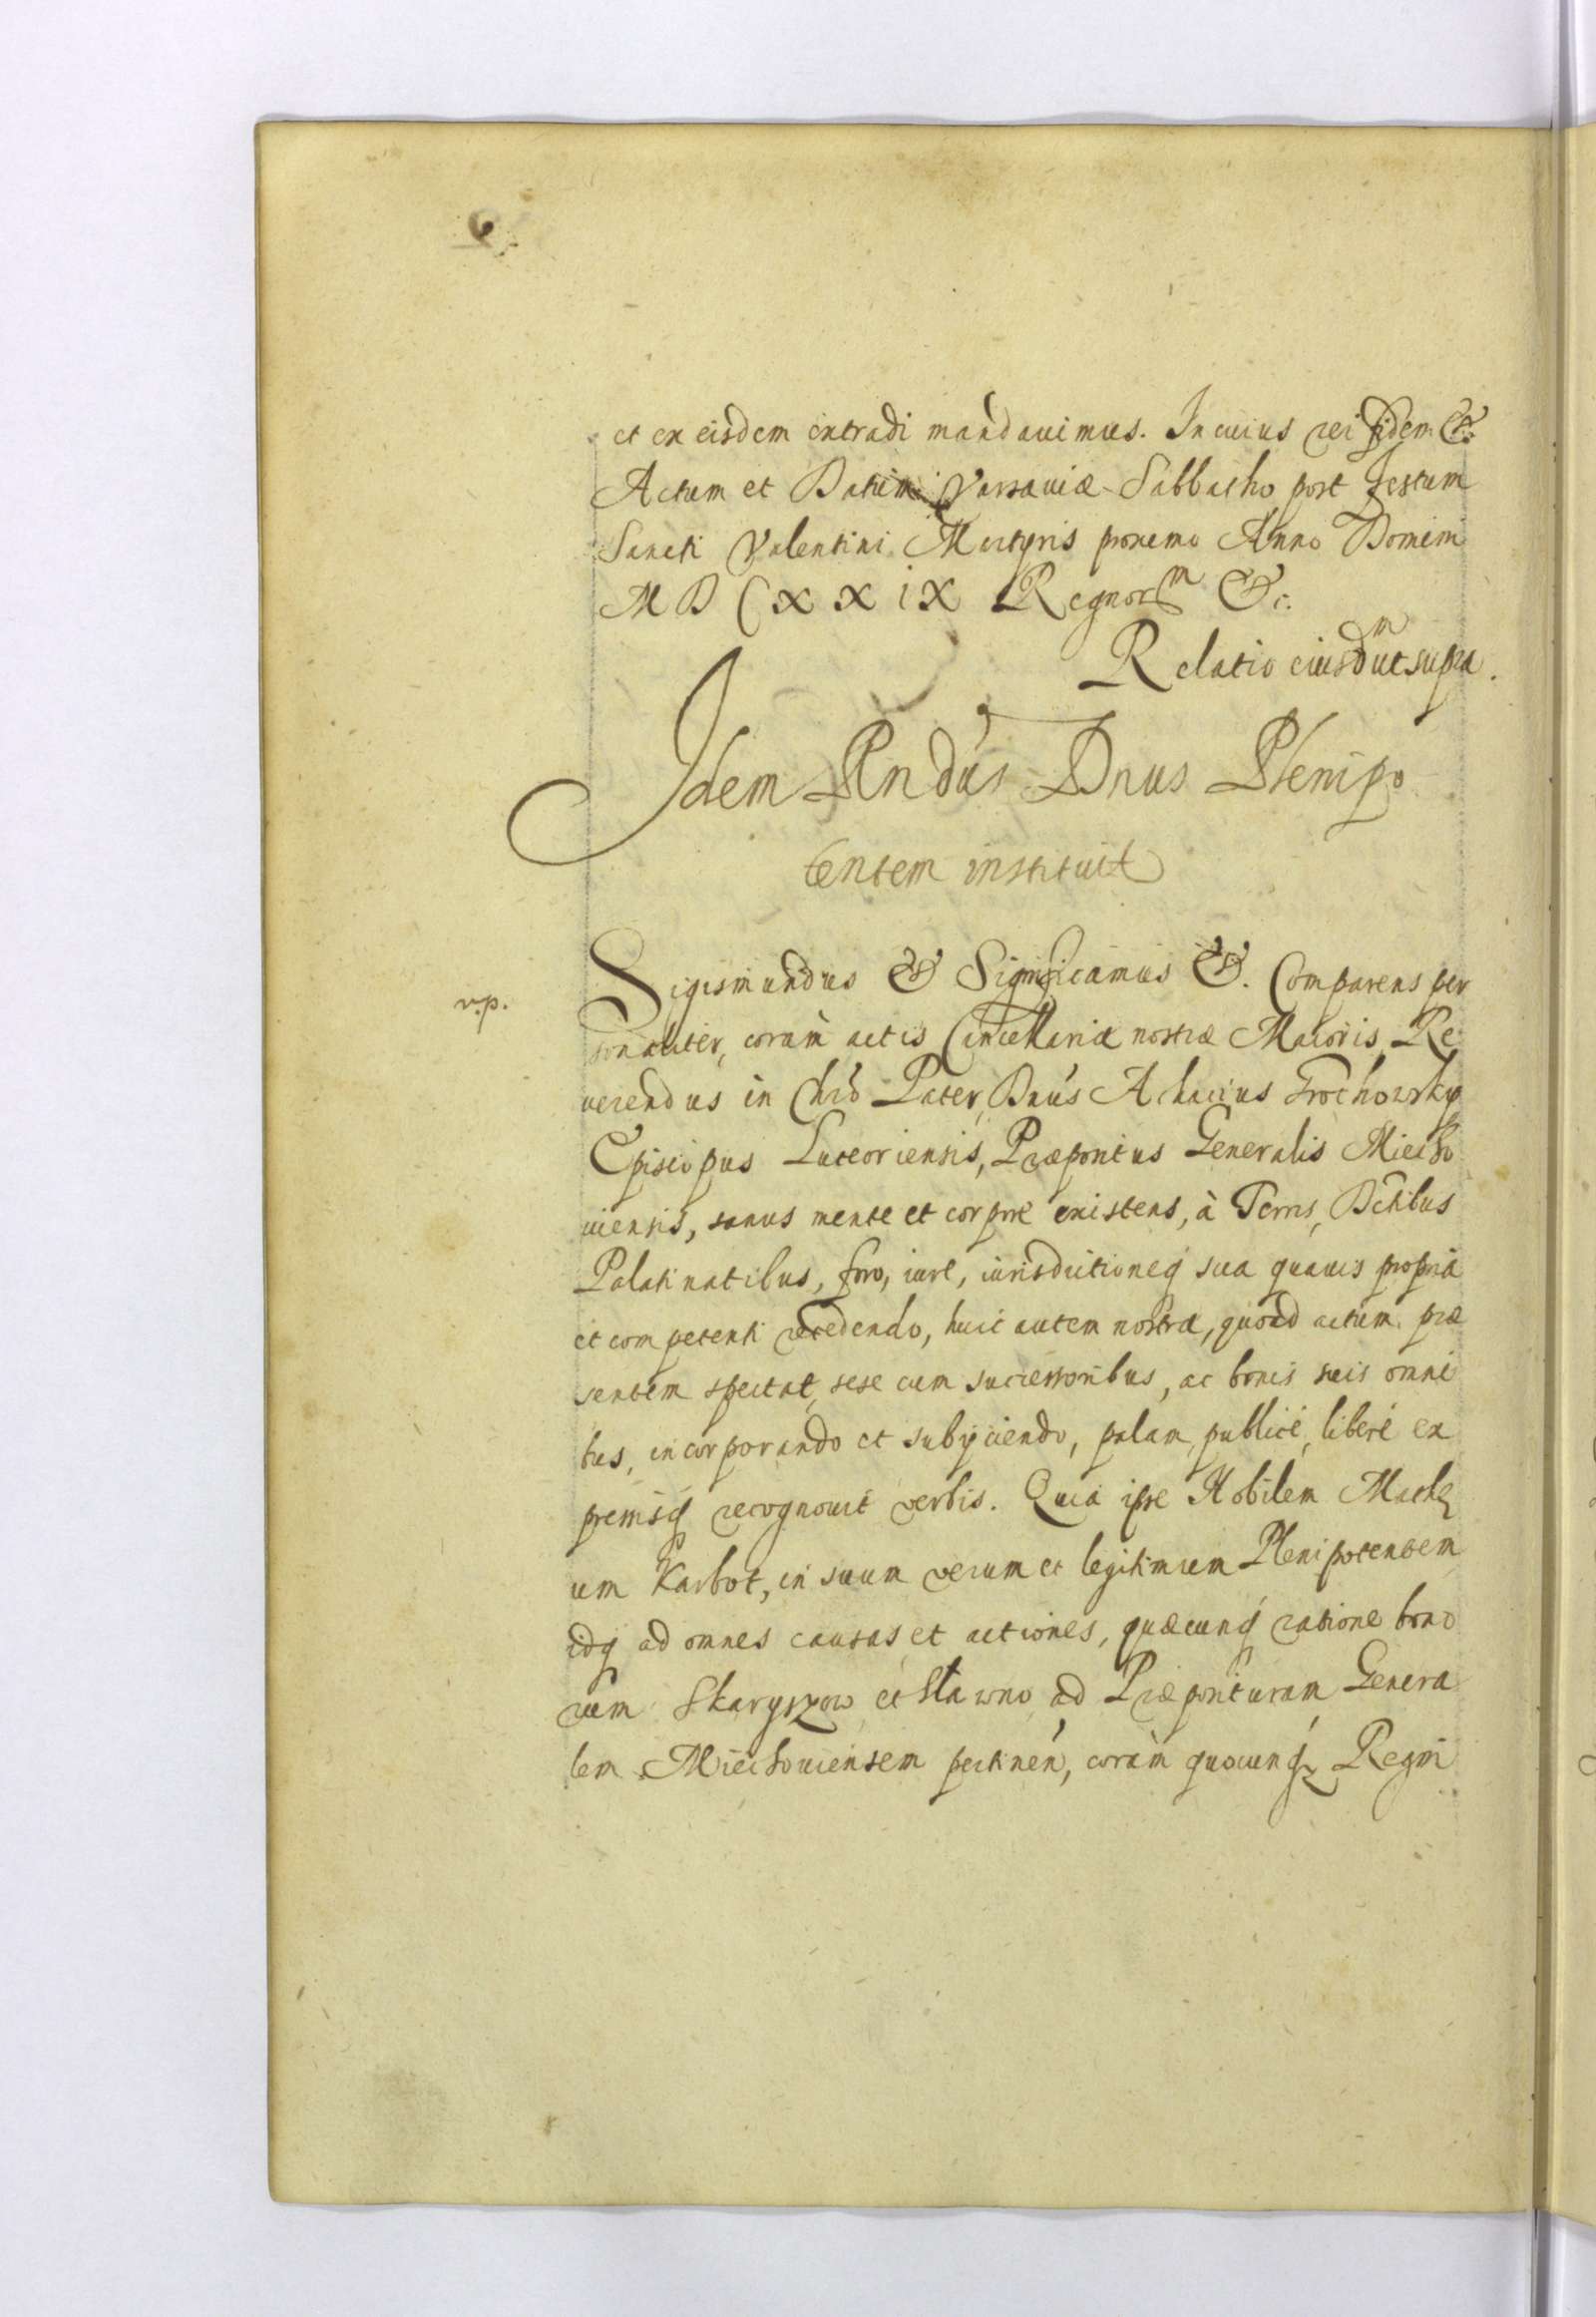 6
et ex eisdem extradi mandauimus. In cuius rei fidem &c.
Actum et Datum Varsauiæ Sabbatho post Festum
Sancti Valentini Martyris proximo Anno Domini
MDCXXIX Regnorm &c.
Relatio eiusdm ut supra.
Idem Rndus Dnus Plenipo
tentem instituit
Sigismundus & Significamus &. Comparens per
v.p.
sonaliter, coram actis Cancellariæ nostræ Maioris, Re
verendus in Chro Pater, Dnus Achacius Grochowsky
Episcopus Luceoriensis, Præpositus Generalis Miecho
uiensis, sanus mente et corpore existens, à Terris, Dctibus
Palatinatibus, foro, iure, iurisdictioneq sua quauis propria
et competenti recedendo, huic autem nostræ, quoad actum præ
sentem spectat, sese cum successoribus, ac bonis suis omni
bus, incorporando et subyciendo, palam, publicè, liberè ex
pressisq recognouit verbis. Quia ipse Nobilem Mathæ
um Karbot, in suum verum et legitimum Plenipotentem
idq ad omnes causas et actiones, quæcunq ratione bono
rum Skaryszow et Sławno ad Præposituram Genera
lem Miechouiensem pertinen, coram quocunq Regni